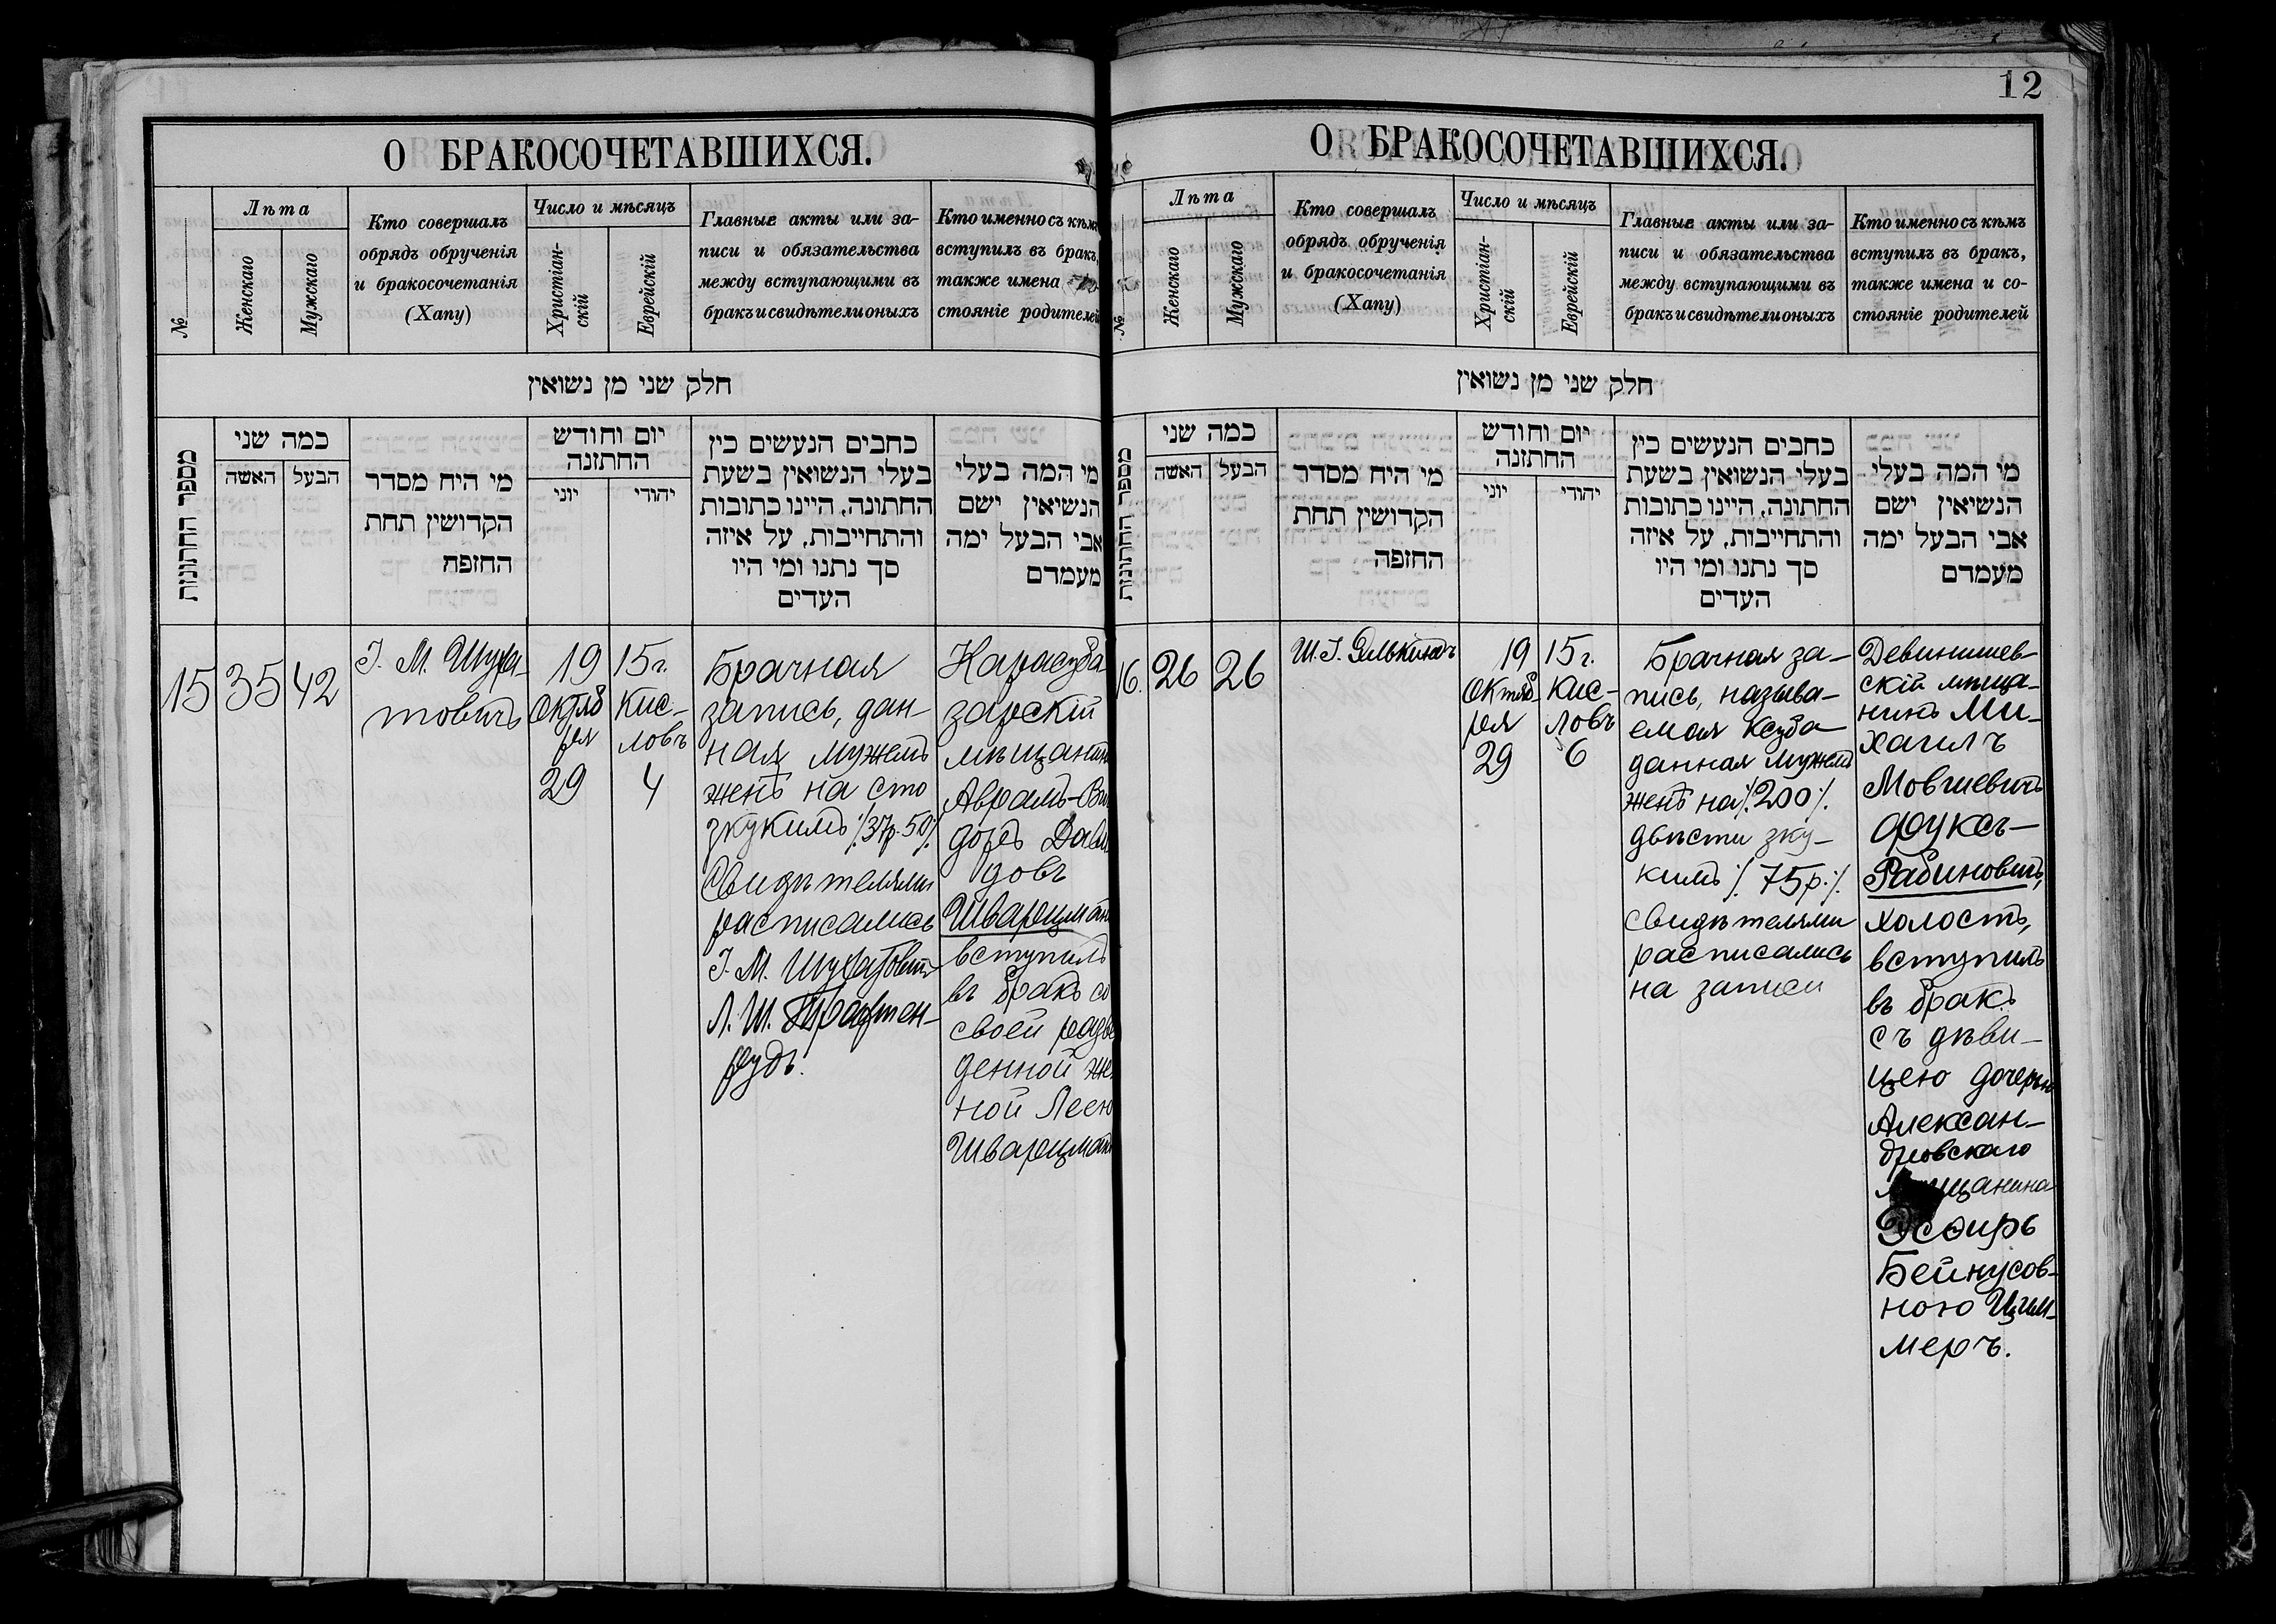 12
О БРАКОСОЧЕТАВШИХСЯ.
№
Лѣта
Женскаго
Мужскаго
Кто совершалъ
обрядъ обрученія
и бракосочетанія
(Хапу)
Число и мѣсяцъ
Христіан-
скій
Еврейскій
Главные акты или за-
писи и обязательства
между вступающими въ
бракъ и свидѣтели оныхъ
Кто именно съ кѣмъ
вступилъ въ бракъ,
также имена
стояніе родителей
חלק שני מן נשואין
מספר החתונות
כמה שני
האשה
הבעל
מי היח מסדר
הקדושין תחת
החזפח
יום וחודש
החתזנה
יוני
יהודי
כחבים הנעשים כין
בעלי הנשואין בשעת
החתונה, היינו כתובות
והתחייבות, על איזה
סך נתנו ומי היו
העדים
מי המה בעלי
הנשיאין ישם
אבי הבעל ימה
מעמדם
15
35
42
І. М. Шуфа-
товичъ
19
Октяб
ря
29
15 г.
Кис-
ловъ
4
Брачная
запись, дан-
ная мужемъ
женѣ на сто
зкукимъ ./. 37р. 50 ./.
Свидѣтелями
расписались
І. М. Шуфатовичъ
Л. Ш.
Карасуба
зарскій
мѣщанинъ
Аврамъ-Ви
доръ Дави
довъ
Шварцман
вступилъ
въ бракъ со
своей разве
денной же
ной Леею
Шварцман
О БРАКОСОЧЕТАВШИХСЯ.
№
Лѣта
Женскаго
Мужскаго
Кто совершалъ
обрядъ обрученія
и бракосочетанія
(Хапу)
Число и мѣсяцъ
Христіан-
скій
Еврейскій
Главные акты или за-
писи и обязательства
между вступающими въ
бракъ и свидѣтели оныхъ
Кто именно съ кѣмъ
вступилъ въ бракъ,
также имена и со-
стояніе родителей
חלק שני מן נשואין
מספר החתונות
כמה שני
האשה
הבעל
מי היח מסדר
הקדושין תחת
החזפה
יום וחודש
החתזנה
יוני
יהודי
כחבים הנעשים כין
בעלי הנשואין בשעת
החתונה, היינו כתובות
והתחייבות, על איזה
סך נתנו ומי היו
העדים
מי המה בעלי
הנשיאין ישם
אבי הבעל ימה
מעמדם
16.
26
26
Ш. І. Элькиндъ
19
Октяб-
ря
29
15 г.
Кис-
ловъ
6
Брачная за-
пись, называ-
емая Ксуба
данная мужемъ
женѣ на ./. 200 ./.
двѣсти зку-
кимъ ./. 75 р. ./.
свидѣтелями
расписались
на записи
Девинишев-
скій мѣща-
нинъ Ми-
хаилъ
Мовшевичъ
Фуксъ-
Рабиновичъ,
холостъ,
вступилъ
въ бракъ
съ дѣви-
цею дочерью
Алексан-
дровскаго
мѣщанина
Эсѳирь
Бейнусов-
ною Цим-
меръ.